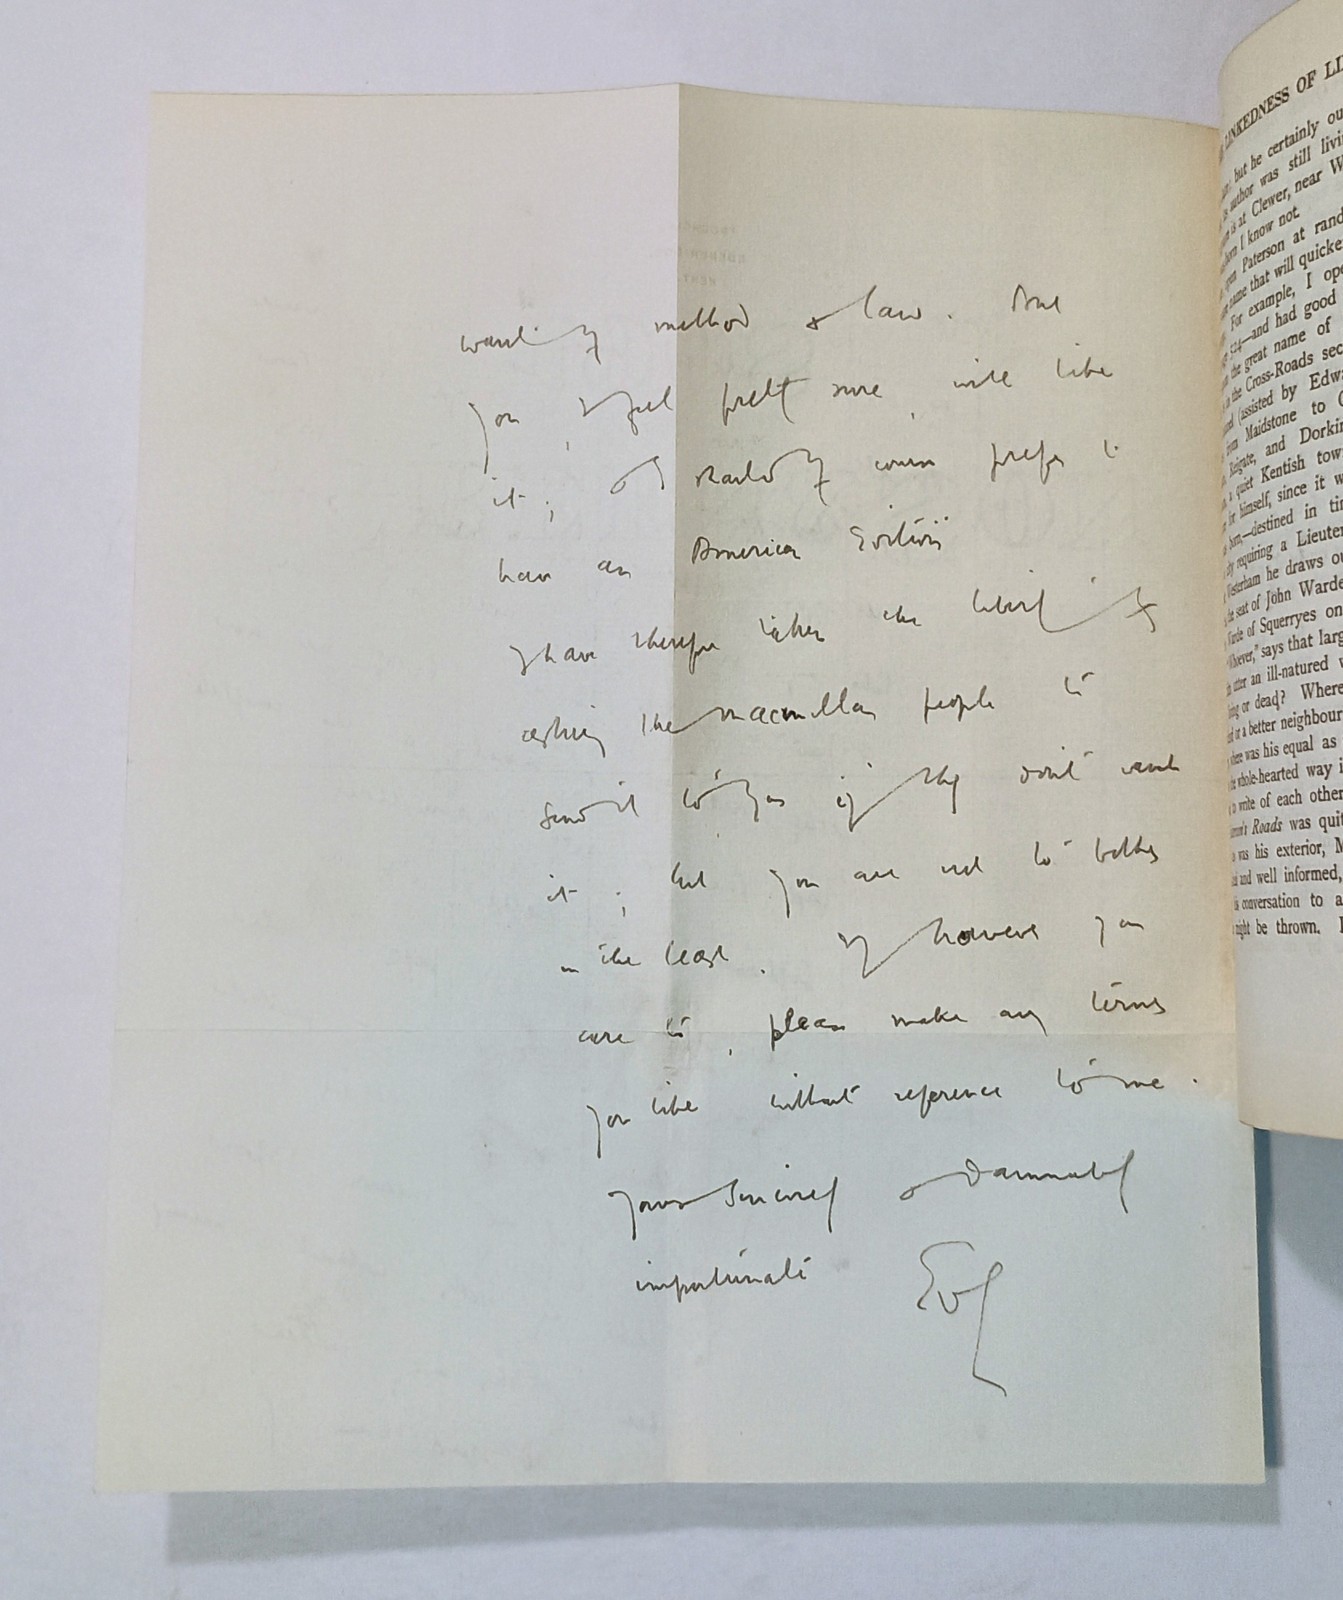 want of method & law. But
you, I feel pretty sure, will like
it; & I should of course prefer to
have an American Edition
I have therefore taken the liberty of
asking the Macmillan people to
send it to you if they don't want
it; but you are not to bother
in the least. If however you
care to, please make any terms
you like without reference to me.
Yours sincerely & damnably
importunate EVL
LINKEDNESS OF LI
but he certainly ou
author was still livi
is at Clewer, near W
I know not.
Paterson at rand
name that will quicke
For example, I ope
524—and had good
the great name of
in the Cross-Roads sec
(assisted by Edwa
from Maidstone to
Reigate, and Dorkin
a quiet Kentish tow
for himself, since it w
born,—destined in tim
requiring a Lieuten
Westerham he draws ou
the seat of John Warde
Warde of Squerryes on
"Whoever," says that larg
utter an ill-natured
living or dead? Where
or a better neighbour
where was his equal as
whole-hearted way i
to write of each other
Roads was quit
was his exterior, M
and well informed,
conversation to a
might be thrown.